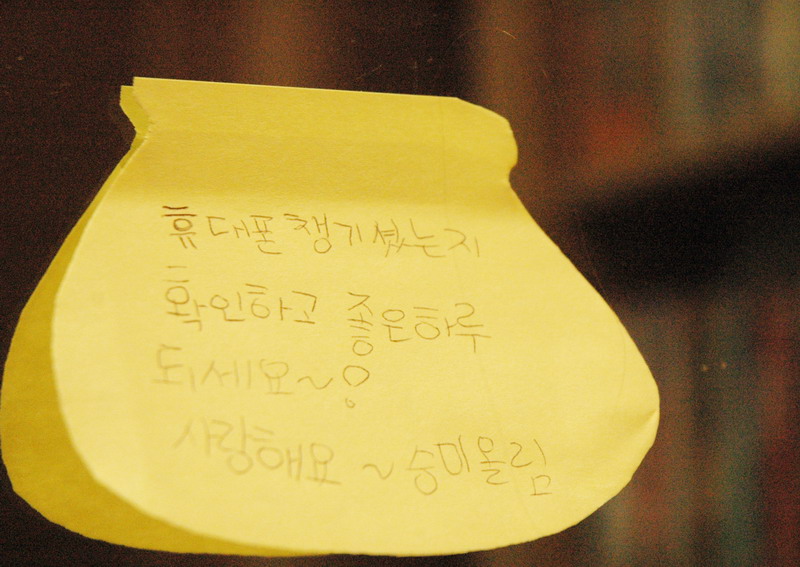 휴대폰 챙기셨는지
확인하고 좋은하루
되세요~!
사랑해요 ~ 승미올림